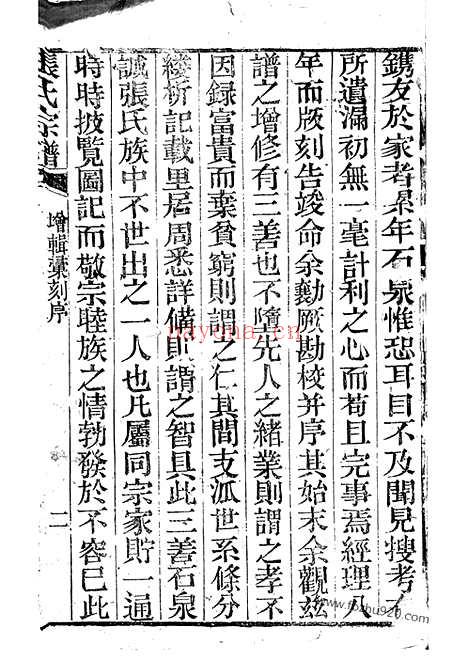 鐫友於家者累年石泉惟恐耳目不及聞見搜考
所遺漏初無一毫計利之心而苟且完事焉經理八
年而版刻告竣命余勷厥勘校并序其始末余觀茲
譜之增修有三善也不隳先人之緒業則謂之孝不
因録富貴而棄貧窮則謂之仁其間支派世系條分
縷析記載里居周悉詳備則謂之智具此三善石泉
誠張氏族中不世出之一人也凡屬同宗家貯一通
時時披覽圖記而敬宗睦族之情勃發於不容已此
張氏宗譜
增輯彙刻序
二
nayona.cn
www.fozhu920.com